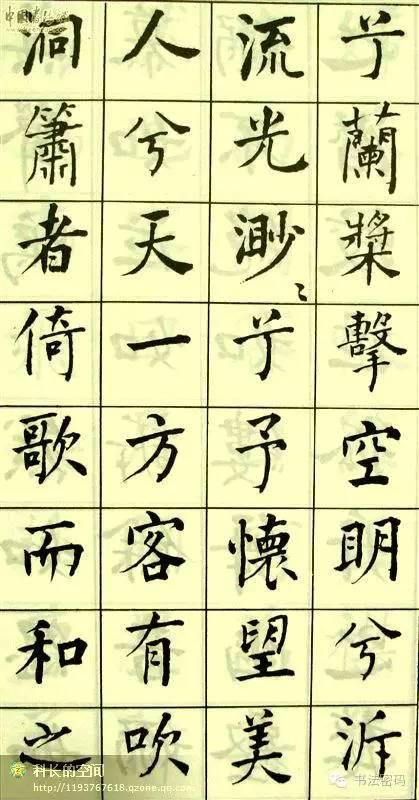 兮蘭槳擊空明兮泝
流光渺〻兮予懷望美
人兮天一方客有吹
洞簫者倚歌而和之
科长的空间
http://1193767618.qzone.qq.com
书法密码